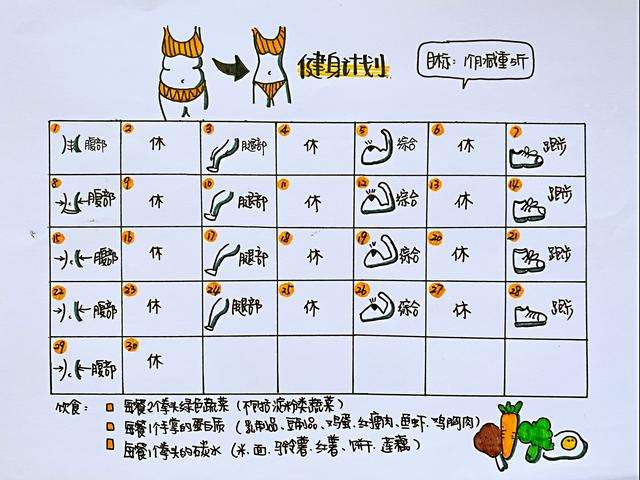 健身计划
目标：1个月减重5斤
1 腹部 2 休 3 腿部 4 休 5 综合 6 休 7 跑步
8 腹部 9 休 10 腿部 11 休 12 综合 13 休 14 跑步
15 腹部 16 休 17 腿部 18 休 19 综合 20 休 21 跑步
22 腹部 23 休 24 腿部 25 休 26 综合 27 休 28 跑步
29 腹部 30 休
饮食：
每餐2个拳头绿色蔬菜（不包括淀粉类蔬菜）
每餐1个手掌的蛋白质（乳制品、豆制品、鸡蛋、红瘦肉、鱼虾、鸡胸肉）
每餐1个拳头的碳水（米、面、马铃薯、红薯、饼干、莲藕）